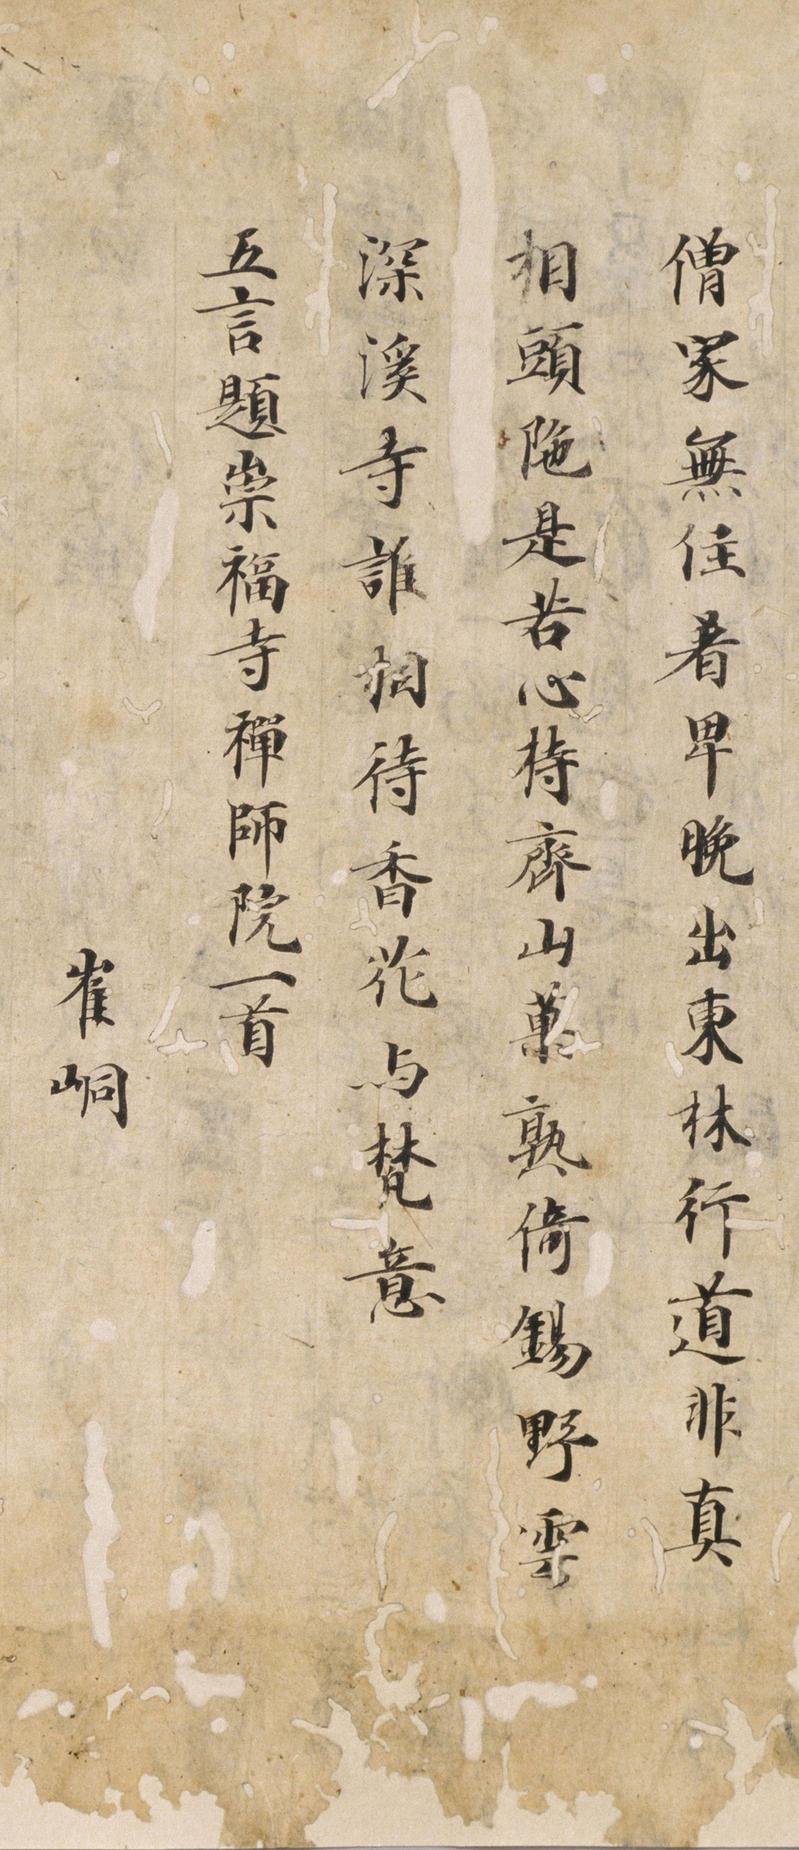 僧家無住着早晚出東林行道非真
相頭陁是苦心持齊山菓熟倚錫野雲
深溪寺誰相待香花与梵意
五言題崇福寺禪師院一首
崔峒